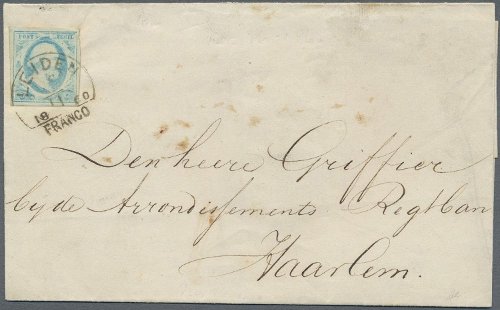 POST ZEGEL
LEIDEN
5
11 60
18
FRANCO
Den heere Griffier
by de Arrondissements Regtban
Haarlem.